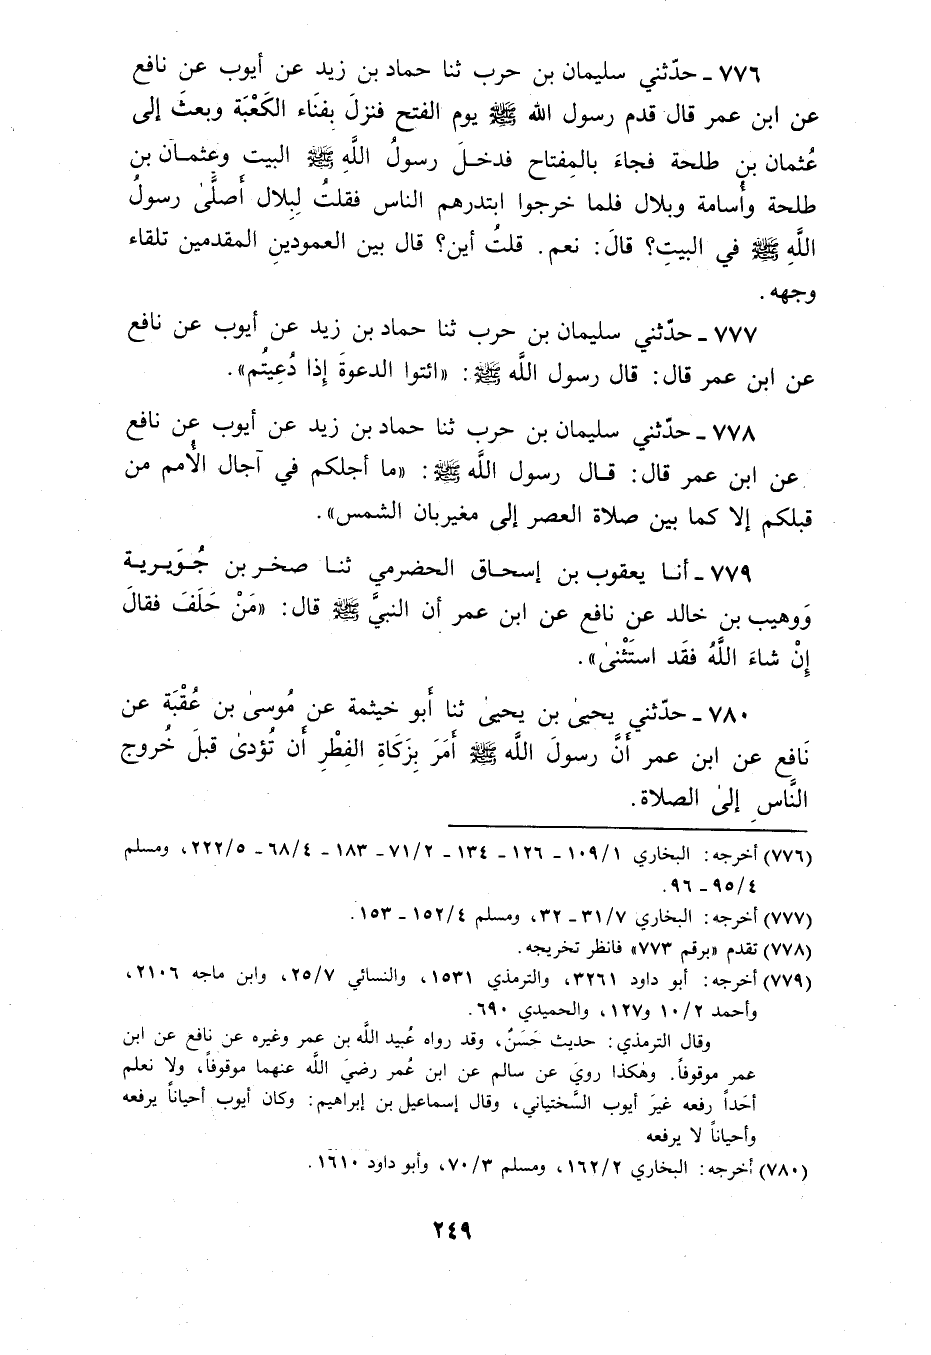 ٧٧٦ ـ حدّثني سليمان بن حرب ثنا حماد بن زيد عن أيوب عن نافع
عن ابن عمر قال قدم رسول الله ﷺ يوم الفتح فنزلَ بِفنَاء الكَعْبَة وبعثَ إلى
عُثمان بن طلحة فجاءَ بالمِفتاح فدخلَ رسولُ اللَّهِ ﷺ البيت وعثمان بن
طلحة وأُسامة وبلال فلما خرجوا ابتدرهم الناس فقلتُ لِبلال أَصلَّىٰ رسولُ
اللَّهِ ﷺ في البيتِ؟ قالَ: نعم. قلتُ أين؟ قال بين العمودينِ المقدمين تلقاء
وجهه.
٧٧٧ ـ حدّثني سليمان بن حرب ثنا حماد بن زيد عن أيوب عن نافع
عن ابن عمر قال: قال رسول اللَّه ﷺ: «ائتوا الدعوةَ إِذا دُعِيتُم».
٧٧٨ ـ حدّثني سليمان بن حرب ثنا حماد بن زيد عن أيوب عن نافع
عن ابن عمر قال: قال رسول اللَّه ﷺ: «ما أجلكم في آجال الأُمم من
قبلكم إلا كما بين صلاة العصر إلى مغيربان الشمس».
٧٧٩ ـ أنا يعقوب بن إسحاق الحضرمي ثنا صخر بن جُوَيرية
وَوهيب بن خالد عن نافع عن ابن عمر أن النبيَّ ﷺ قال: «مَنْ حَلَفَ فقالَ
إِنْ شاءَ اللَّهُ فقَد استَثْنىٰ».
٧٨٠ ـ حدّثني يحيىٰ بن يحيىٰ ثنا أَبو خيثمة عن مُوسىٰ بن عُقْبَة عن
نَافع عن ابن عمر أَنَّ رسولَ اللَّه ﷺ أَمَرَ بِزَكَاةِ الفِطْرِ أَن تُؤدىٰ قبلَ خُروج
النَّاسِ إلىٰ الصلاة.
(٧٧٦) أخرجه: البخاري ١/١٠٩ ـ ١٢٦ ـ ١٣٤ ـ ٢/٧١ ـ ١٨٣ ـ ٤/٦٨ ـ ٥/٢٢٢، ومسلم
٤/٩٥ ـ ٩٦.
(٧٧٧) أخرجه: البخاري ٧/٣١ ـ ٣٢، ومسلم ٤/١٥٢ ـ ١٥٣.
(٧٧٨) تقدم «برقم ٧٧٣» فانظر تخريجه.
(٧٧٩) أخرجه: أبو داود ٣٢٦١، والترمذي ١٥٣١، والنسائي ٧/٢٥، وابن ماجه ٢١٠٦،
وأحمد ٢/١٠ و١٢٧، والحميدي ٦٩٠.
وقال الترمذي: حديث حَسَنٌ، وقد رواه عُبيد اللَّه بن عمر وغيره عن نافع عن ابن
عمر موقوفاً. وهٰكذا رويَ عن سالم عن ابن عُمر رضيَ اللَّه عنهما موقوفاً، ولا نعلم
أحَداً رفعه غيرَ أيوب السَّختياني، وقال إسماعيل بن إبراهيم: وكان أيوب أحياناً يرفعه
وأحياناً لا يرفعه
(٧٨٠) أخرجه: البخاري ٢/١٦٢، ومسلم ٣/٧٠، وأبو داود ١٦١٠.
٢٤٩